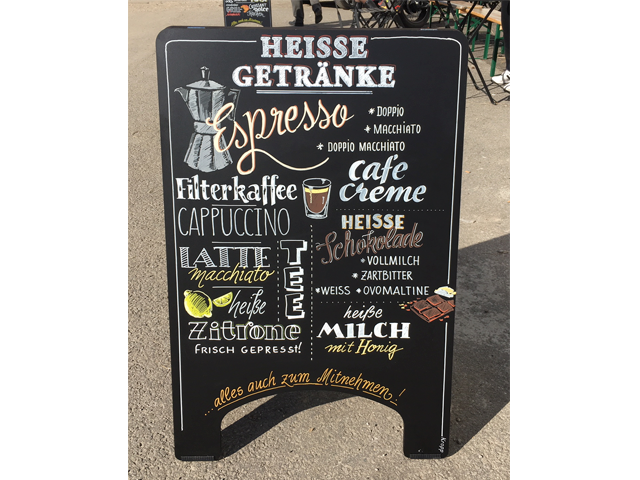 HEISSE
GETRÄNKE
Espresso
* DOPPIO
* MACCHIATO
* DOPPIO MACCHIATO
Filterkaffee
Cafe
Creme
CAPPUCCINO
LATTE
macchiato
TEE
HEISSE
Schokolade
* VOLLMILCH
* ZARTBITTER
* WEISS * OVOMALTINE
heiße
Zitrone
FRISCH GEPRESST!
heiße
MILCH
mit Honig
...alles auch zum Mitnehmen!